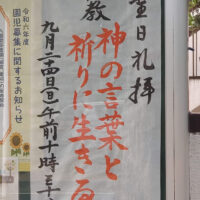 聖日礼拝
教 神の言葉と
祈りに生きる
九月二十四日(日)午前十時三十
令和六年度
園児募集に関するお知らせ